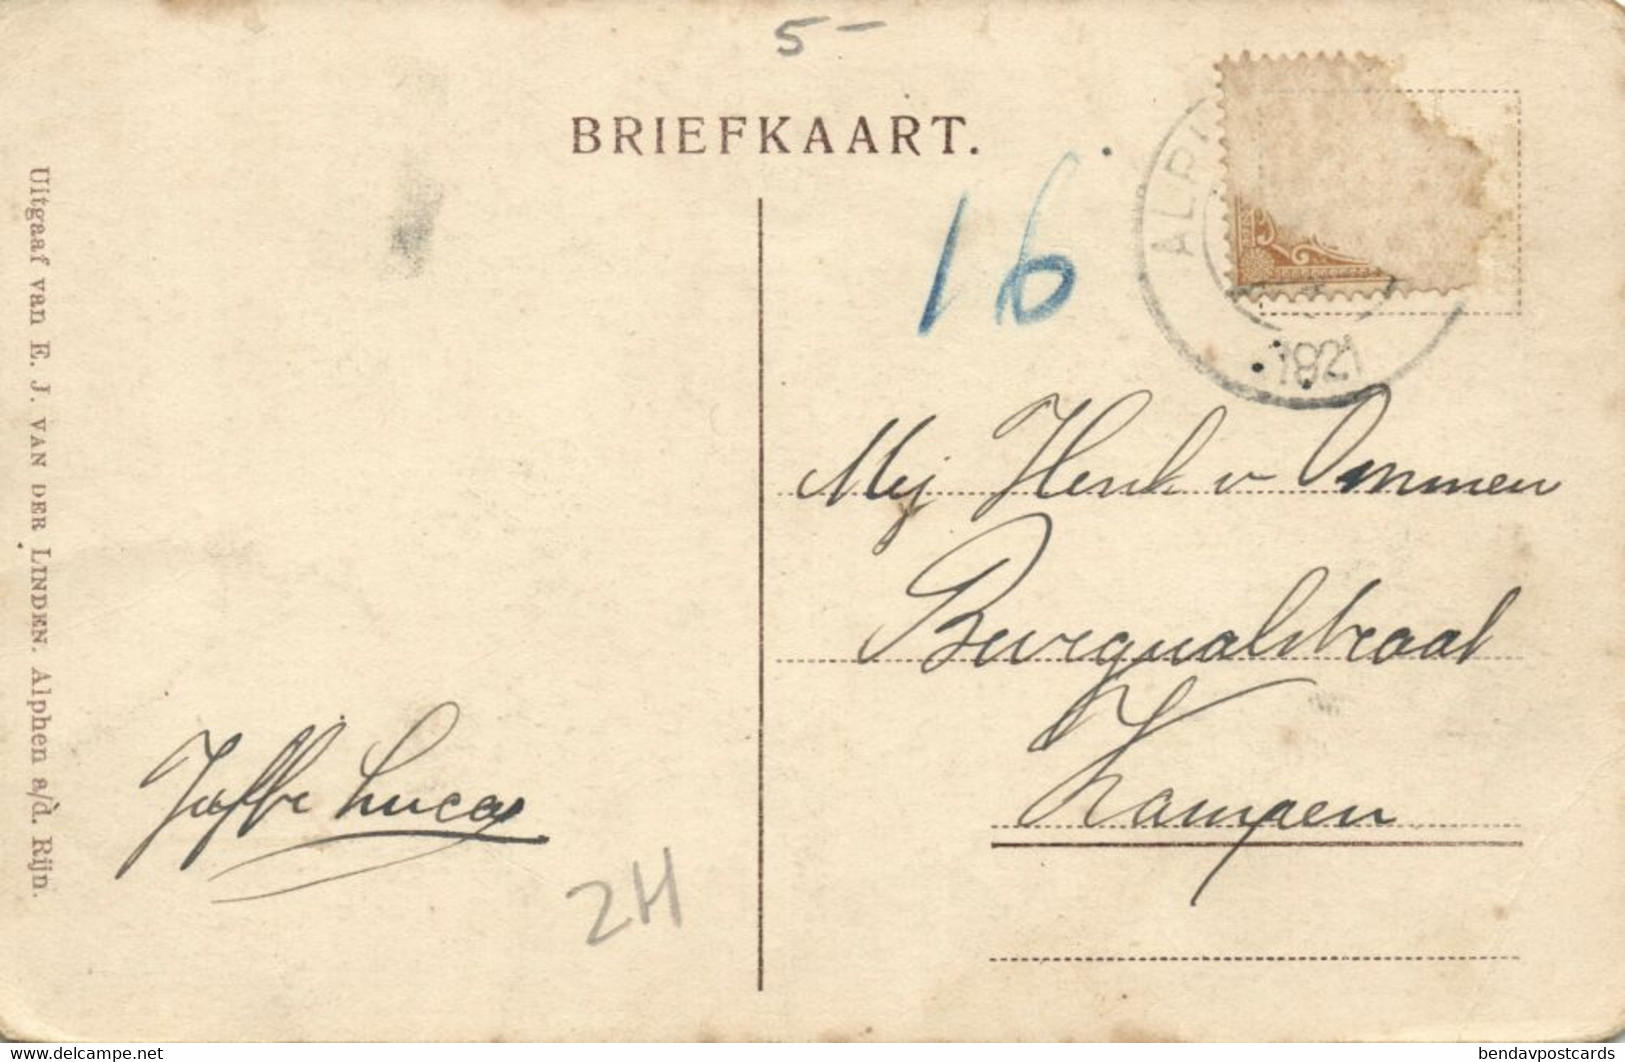 5-
BRIEFKAART.
16
ALP
1921
Uitgaaf van E. J. VAN DER LINDEN. Alphen a/d. Rijn.
Mej Henk v Ommen
Burgwalstraat
Kampen
Lucas
2H
www.delcampe.net
bendavpostcards